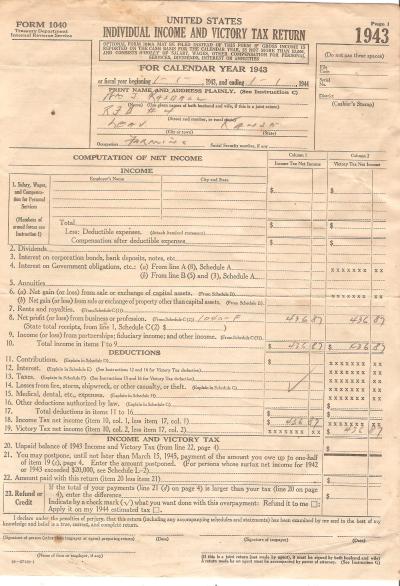 FORM 1040
Treasury Department
Internal Revenue Service
UNITED STATES
INDIVIDUAL INCOME AND VICTORY TAX RETURN
OPTIONAL FORM 1040A MAY BE FILED INSTEAD OF THIS FORM IF GROSS INCOME IS
REPORTED ON THE CASH BASIS FOR THE CALENDAR YEAR, IS NOT MORE THAN $3,000,
AND CONSISTS WHOLLY OF SALARY, WAGES, COMPENSATION FOR PERSONAL
SERVICES, DIVIDENDS, INTEREST OR ANNUITIES
Page 1
1943
FOR CALENDAR YEAR 1943
or fiscal year beginning 1-1-, 1943, and ending 1-1-, 1944
PRINT NAME AND ADDRESS PLAINLY. (See Instruction C)
(Name) (Use given names of both husband and wife, if this is a joint return)
RFD # 4
(Street and number, or rural route)
(City or town) (State)
Occupation Farming Social Security number, if any
(Do not use these spaces)
File Code
Serial No.
District
(Cashier's Stamp)
COMPUTATION OF NET INCOME
Column 1
Income Tax Net Income
Column 2
Victory Tax Net Income
INCOME
1. Salary, Wages, and Compensation for Personal Services
(Members of armed forces see Instruction 1)
Employer's Name City and State
Total
Less: Deductible expenses. (Attach itemized statement)
Compensation after deductible expenses
2. Dividends
3. Interest on corporation bonds, bank deposits, notes, etc.
4. Interest on Government obligations, etc.: (a) From line A (8), Schedule A
(b) From line B (5) and (3), Schedule A xxxxxxx xx
5. Annuities
6. (a) Net gain (or loss) from sale or exchange of capital assets. (From Schedule B) xxxxxxx xx
(b) Net gain (or loss) from sale or exchange of property other than capital assets. (From Schedule B)
7. Rents and royalties. (From Schedule C(1))
8. Net profit (or loss) from business or profession. (From Schedule C(2)) 1040-F 436 87 436 87
(State total receipts, from line 1, Schedule C(2) $ )
9. Income (or loss) from partnerships; fiduciary income; and other income.
10. Total income in items 1 to 9 $ 436 87 $ 436 87
DEDUCTIONS
11. Contributions. (Explain in Schedule D) xxxxxxx xx
12. Interest. (Explain in Schedule E) (See Instructions 12 and 16 for Victory Tax deduction)
13. Taxes. (Explain in Schedule F) (See Instructions 13 and 16 for Victory Tax deduction)
14. Losses from fire, storm, shipwreck, or other casualty, or theft. (Explain in Schedule G)
15. Medical, dental, etc., expenses. (Explain in Schedule H) xxxxxxx xx
16. Other deductions authorized by law. (Explain in Schedule I)
17. Total deductions in items 11 to 16
18. Income Tax net income (item 10, col. 1, less item 17, col. 1) $ 436 87 xxxxxxx xx
19. Victory Tax net income (item 10, col. 2, less item 17, col. 2) xxxxxxx xx $ 436 87
INCOME AND VICTORY TAX
20. Unpaid balance of 1943 Income and Victory Tax (from line 22, page 4) $
21. You may postpone, until not later than March 15, 1945, payment of the amount you owe up to one-half of item 19 (c), page 4. Enter the amount postponed. (For persons whose surtax net income for 1942 or 1943 exceeded $20,000, see Schedule L-2)
22. Amount paid with this return (item 20 less item 21) $
23. Refund or Credit
If the total of your payments (line 21 (d) on page 4) is larger than your tax (line 20 on page 4), enter the difference $
Indicate by a check mark (✓) what you want with this overpayment: Refund it to me □;
Apply it on my 1944 estimated tax □.
I declare under the penalties of perjury that this return (including any accompanying schedules and statements) has been examined by me and to the best of my knowledge and belief is a true, correct, and complete return.
(Signature of person (other than taxpayer or agent) preparing return) (Date) (Signature of taxpayer) (Date)
(Name of firm or employer, if any)
(If this is a joint return (not made by agent), it must be signed by both husband and wife)
A return made by an agent must be accompanied by power of attorney. (See Instruction)